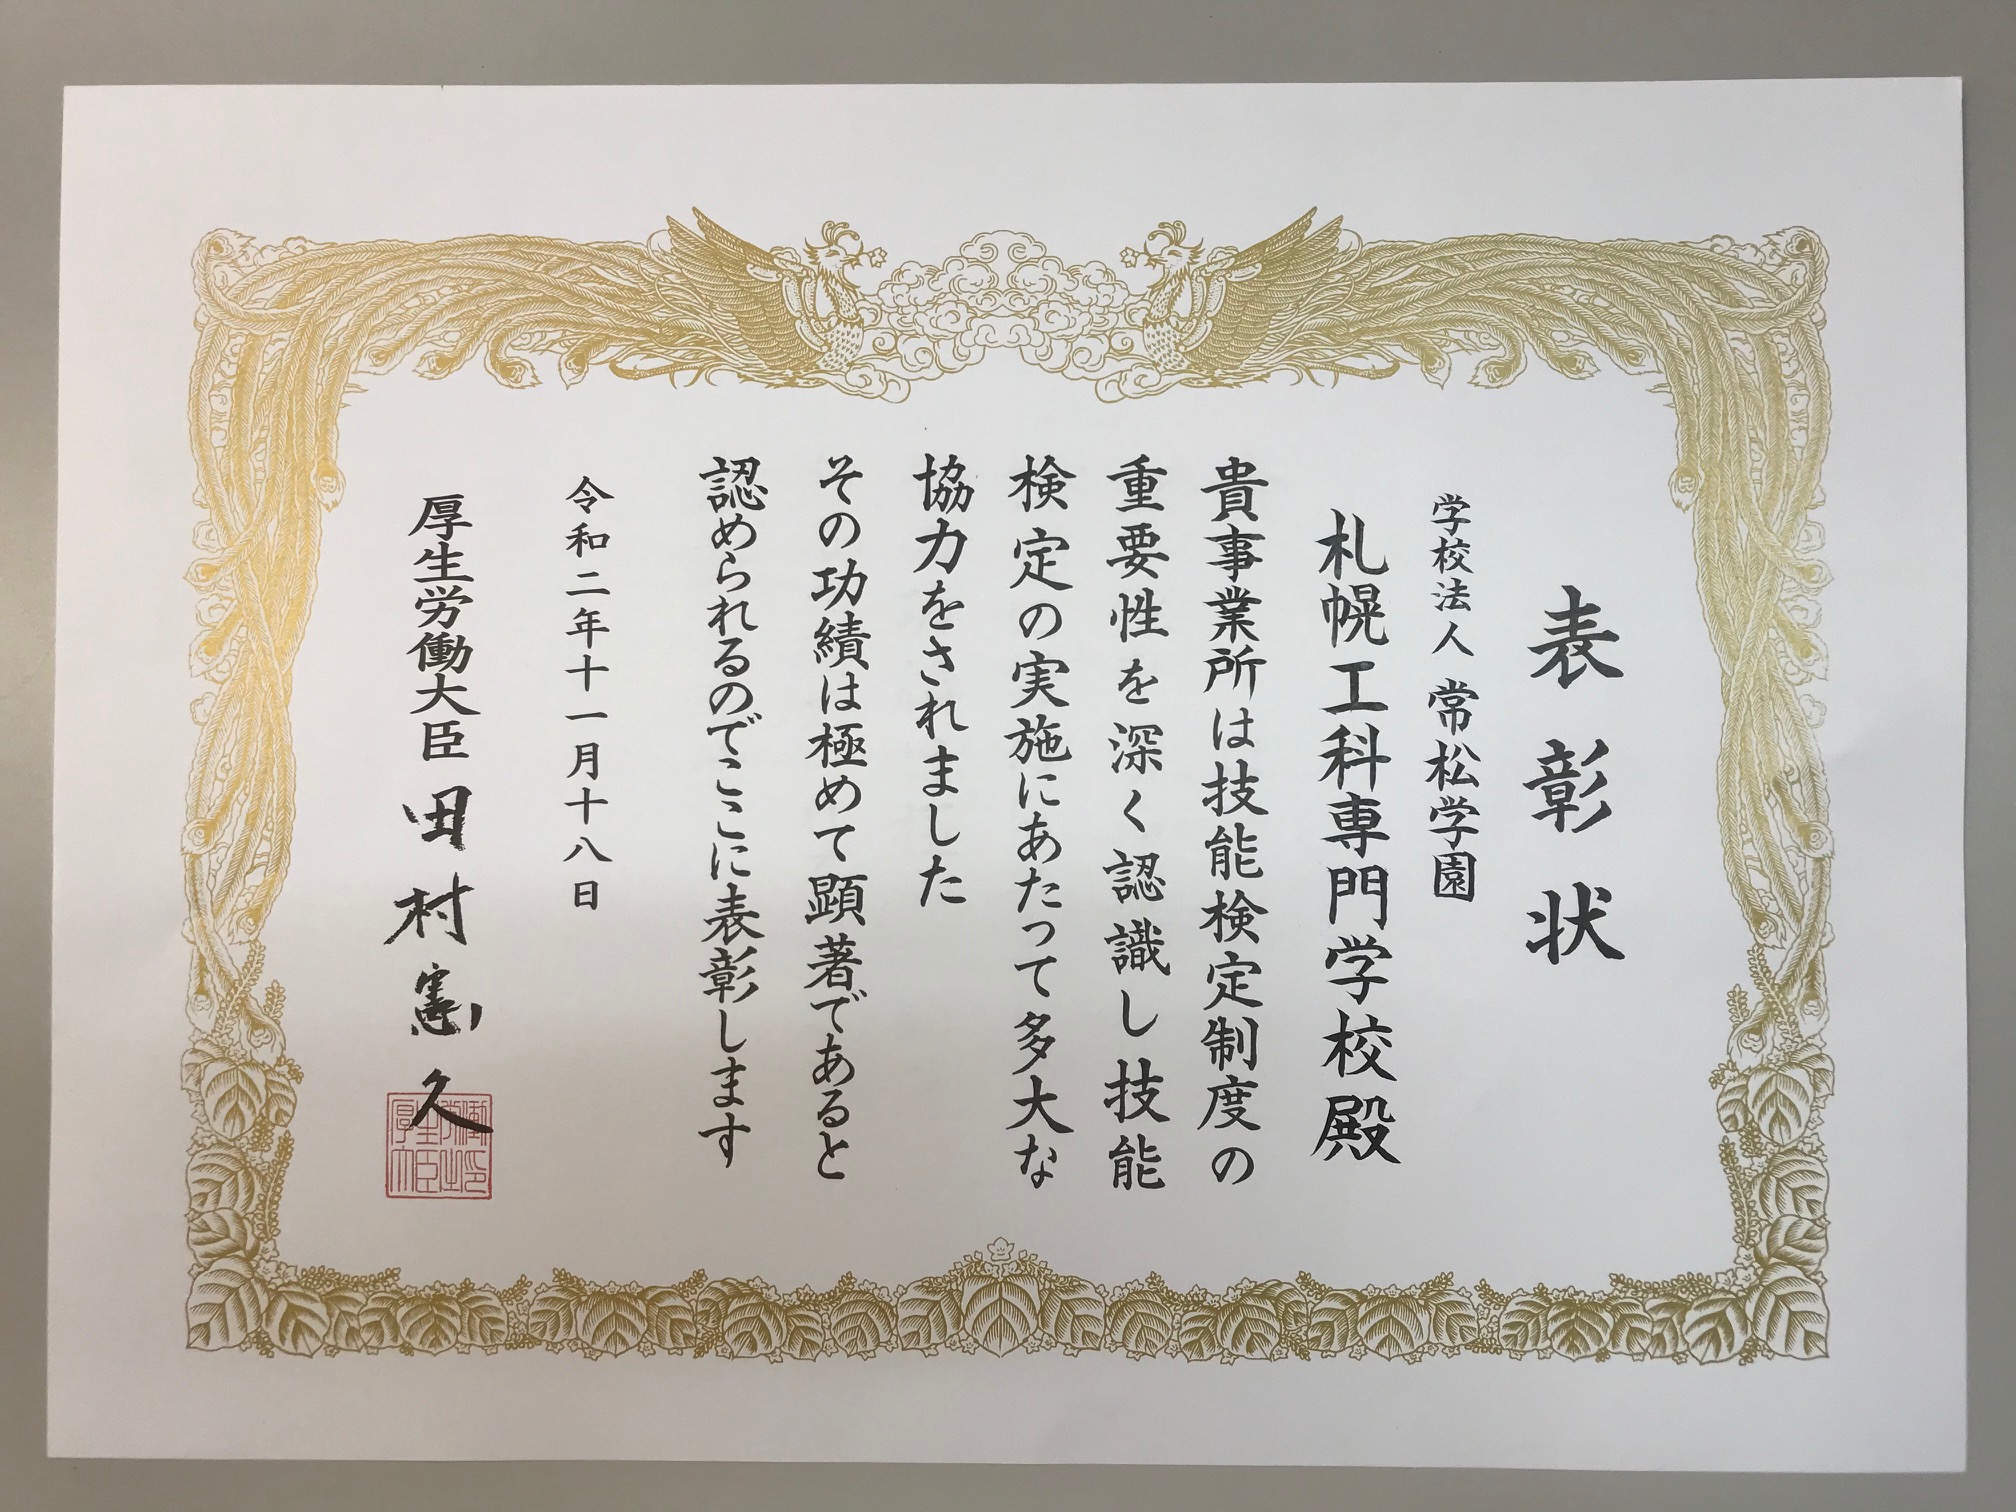 表彰状
学校法人 常松学園
札幌工科専門学校殿
貴事業所は技能検定制度の
重要性を深く認識し技能
検定の実施にあたって多大な
協力をされました
その功績は極めて顕著であると
認められるのでここに表彰します
令和二年十一月十八日
厚生労働大臣 田村憲久